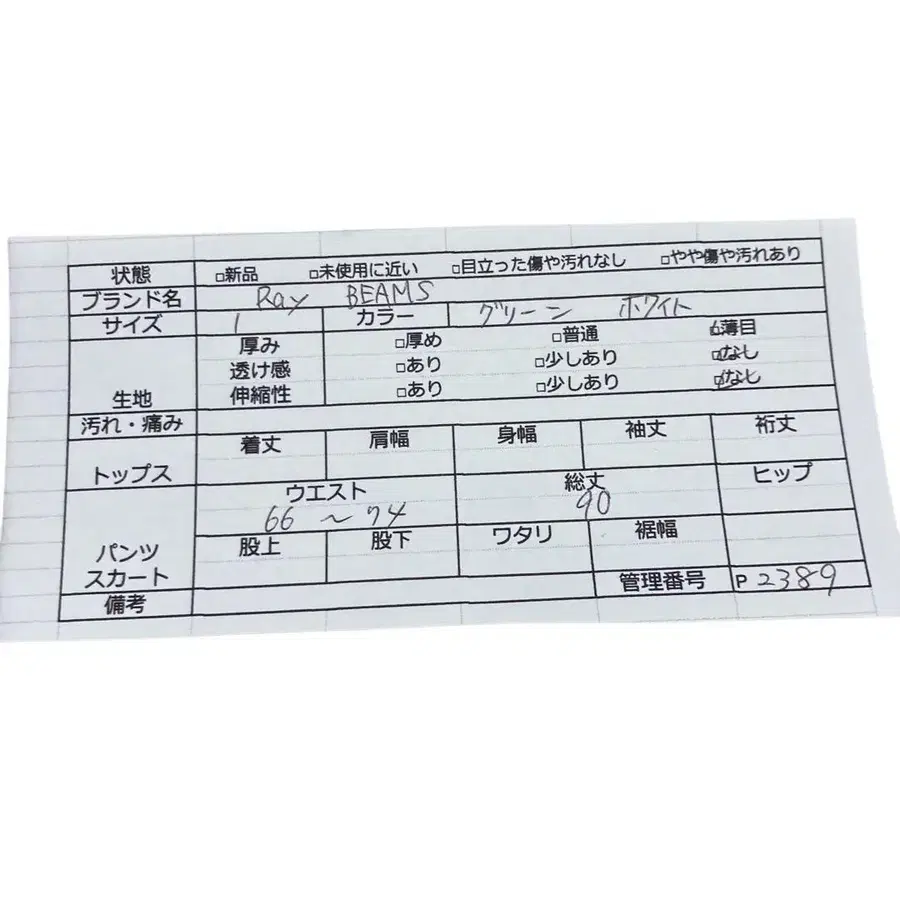 状態 □新品 □未使用に近い □目立った傷や汚れなし □やや傷や汚れあり
ブランド名 Ray BEAMS
サイズ 1 カラー グリーン ホワイト
生地 厚み □厚め □普通 ☑薄目
透け感 □あり □少しあり ☑なし
伸縮性 □あり □少しあり ☑なし
汚れ・痛み
トップス 着丈 肩幅 身幅 袖丈 裄丈
パンツ スカート ウエスト 総丈 ヒップ
66 〜 74 90
股上 股下 ワタリ 裾幅
備考 管理番号 P 2389